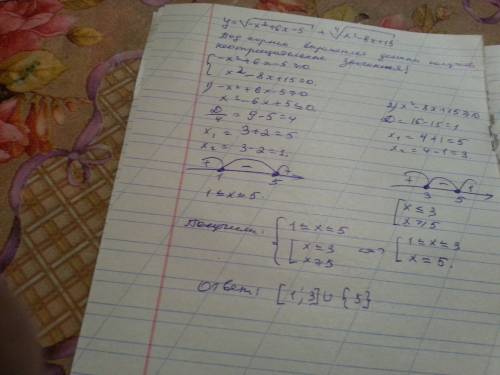 y = √-x²+6x-5 + √x²-8x+15
Под корнем выражение должно получать
неотрицательные значения!
{ -x²+6x-5≥0
x²-8x+15≥0.
1) -x²+6x-5≥0
x²-6x+5≤0
D/4 = 9-5=4
x₁ = 3+2=5
x₂ = 3-2=1.
+ - +
1 5
1≤x≤5.
2) x²-8x+15≥0
D = 16-15=1
x₁ = 4+1=5
x₂ = 4-1=3
+ - +
3 5
[ x≤3
x≥5
Получим: { 1≤x≤5
[ x≤3
x≥5
<=> [ 1≤x≤3
x=5.
Ответ: [1;3]∪{5}